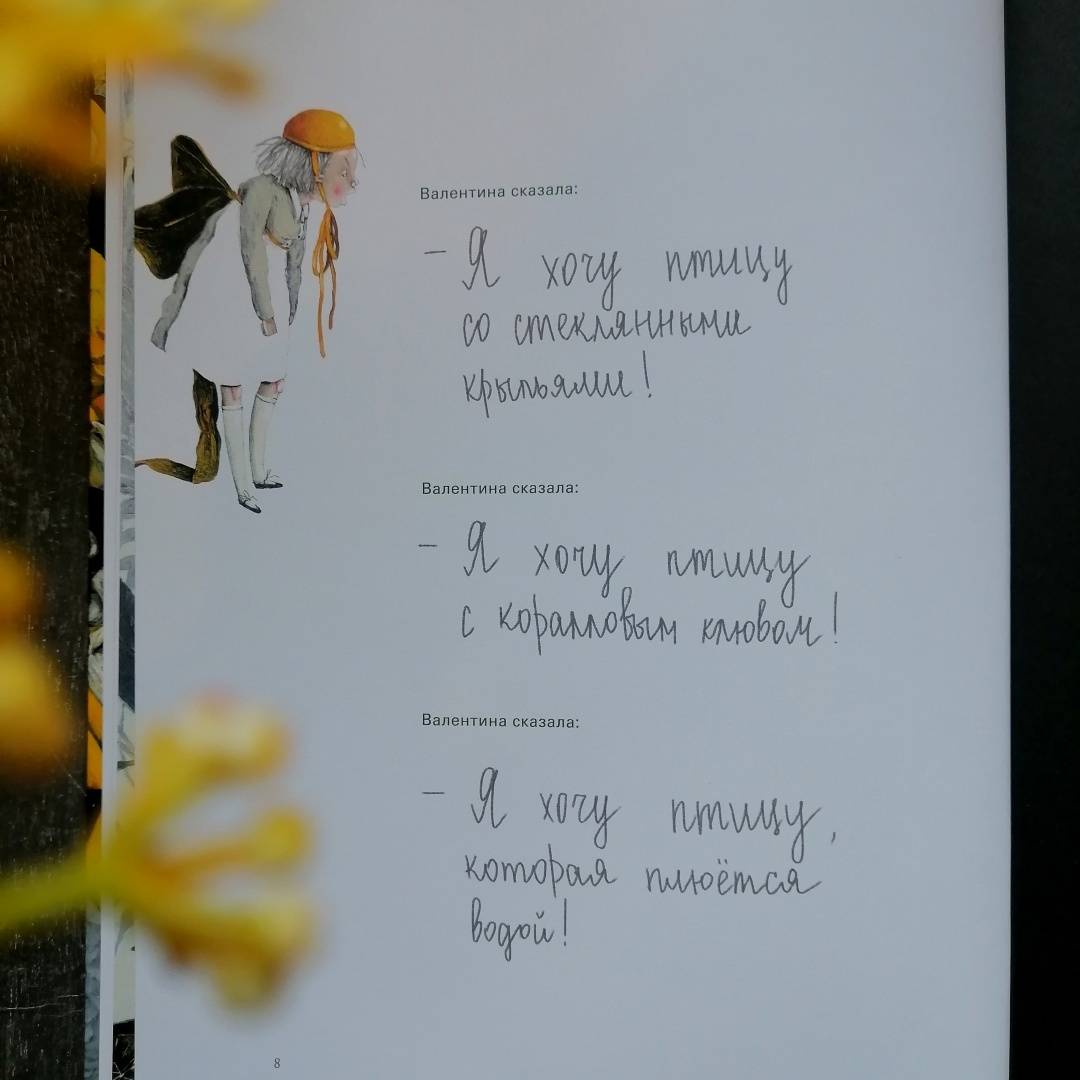 Валентина сказала:
— Я хочу птицу
со стеклянными
крыльями!
Валентина сказала:
— Я хочу птицу
с коралловым клювом!
Валентина сказала:
— Я хочу птицу,
которая плюётся
водой!
8